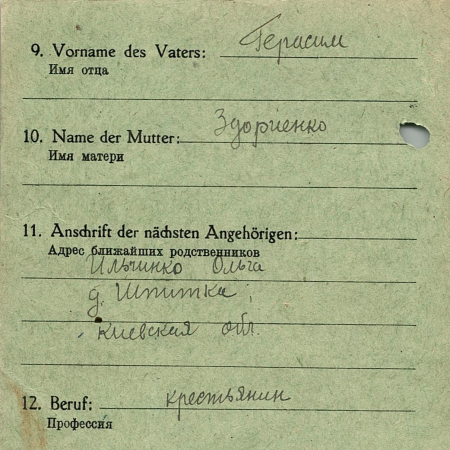 9. Vorname des Vaters: Герасим
Имя отца
10. Name der Mutter: Здориенко
Имя матери
11. Anschrift der nächsten Angehörigen:
Адрес ближайших родственников
Ильчинко Ольга
д. Шпитка,
Киевская обл.
12. Beruf: крестьянин
Профессия